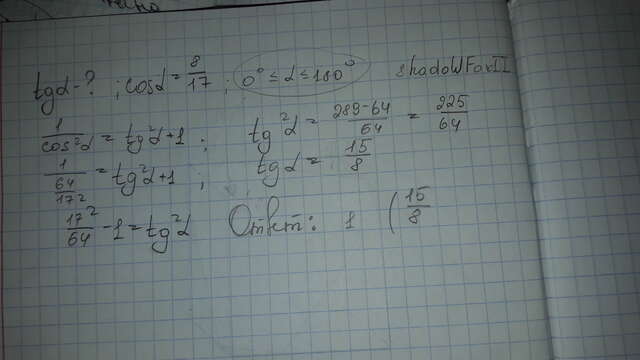 tgα-? ; cosα = 8/17 ; 0° ≤ α ≤ 180° shadoWForII
1/cos²α = tg²α+1 ; tg²α = 289-64/64 = 225/64
1/(64/17²) = tg²α+1 ; tgα = 15/8
17²/64 - 1 = tg²α Ответ: 1 (15/8